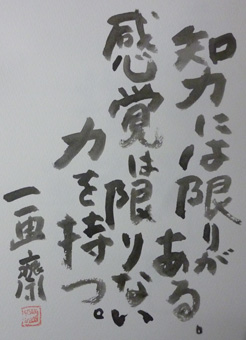 知力には限りがある。
感覚は限りない
力を持つ。
一画齋